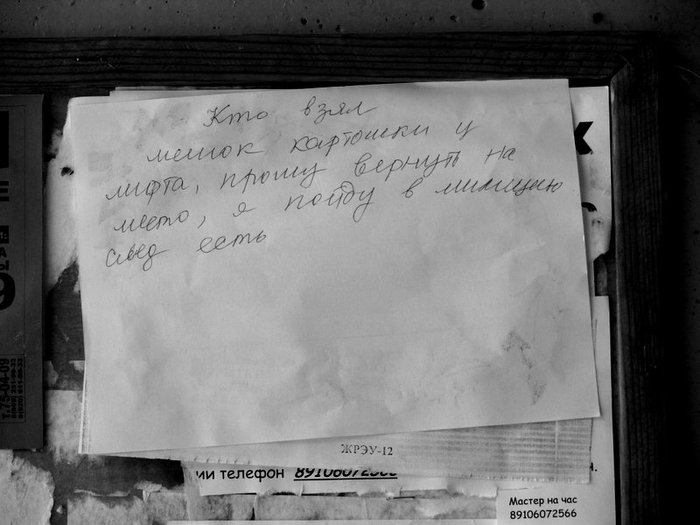 Кто взял
мешок картошки у
лифта, прошу вернуть на
место, я пойду в милицию
след есть
ЖРЭУ-12
ии телефон
Мастер на час
89106072566